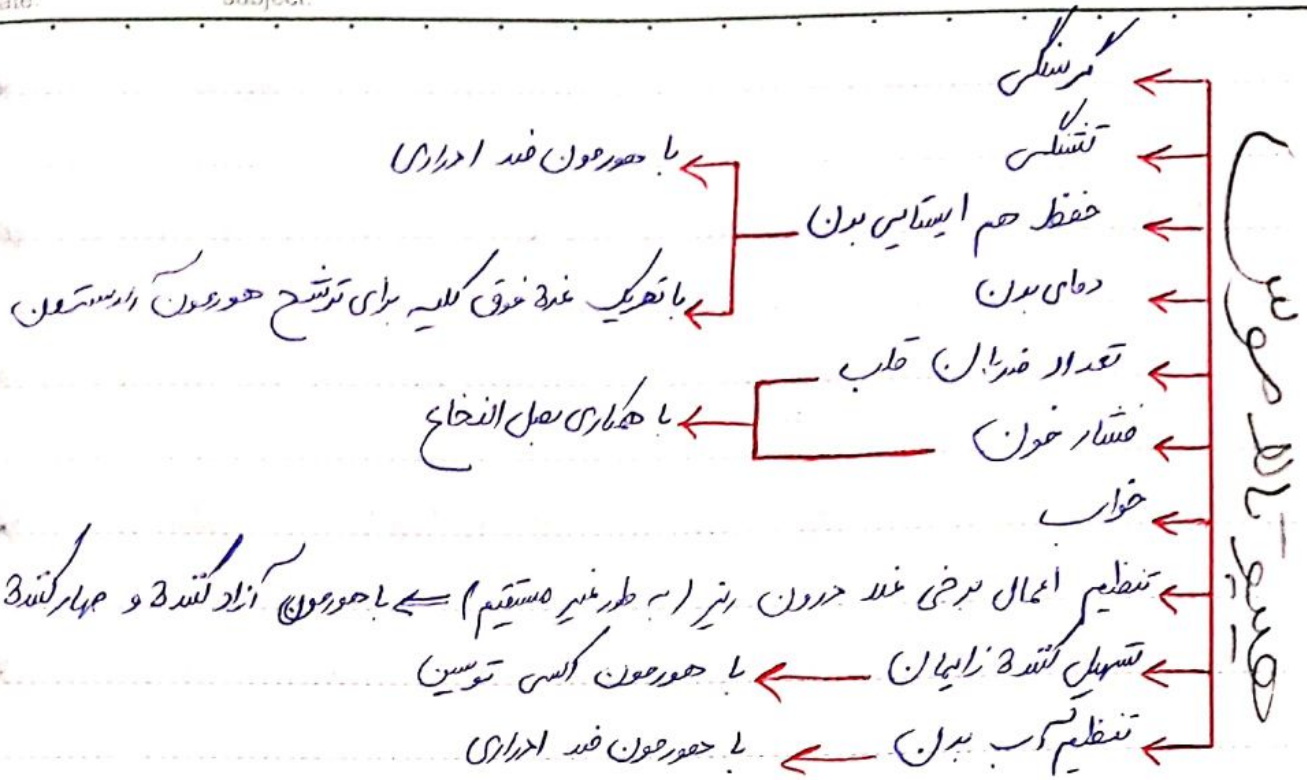 Date: Subject:
هیپوتالاموس
گرسنگی
تشنگی
حفظ هم ایستایی بدن
با هورمون ضد ادراری
با تحریک غدهٔ فوق کلیه برای ترشح هورمون آلدسترون
دمای بدن
تعداد ضربان قلب
فشار خون
با همکاری بصل النخاع
خواب
تنظیم اعمال برخی غدد درون ریز (به طور غیر مستقیم) ⇐ با هورمون آزاد کننده و مهار کننده
تسهیل کننده زایمان ← با هورمون اکسی توسین
تنظیم آب بدن ← با هورمون ضد ادراری